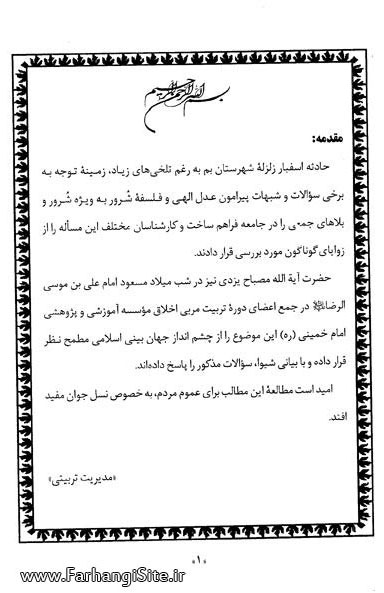 بسم الله الرحمن الرحیم
مقدمه:
حادثه اسفبار زلزلهٔ شهرستان بم به رغم تلخی‌های زیاد، زمینهٔ توجه به
برخی سؤالات و شبهات پیرامون عدل الهی و فلسفهٔ شُرور به ویژه شُرور و
بلاهای جمعی را در جامعه فراهم ساخت و کارشناسان مختلف این مسأله را از
زوایای گوناگون مورد بررسی قرار دادند.
حضرت آیة الله مصباح یزدی نیز در شب میلاد مسعود امام علی بن موسی
الرضا﷼ در جمع اعضای دورهٔ تربیت مربی اخلاق مؤسسه آموزشی و پژوهشی
امام خمینی (ره) این موضوع را از چشم انداز جهان بینی اسلامی مطمح نظر
قرار داده و با بیانی شیوا، سؤالات مذکور را پاسخ داده‌اند.
امید است مطالعهٔ این مطالب برای عموم مردم، به خصوص نسل جوان مفید
افتد.
«مدیریت تربیتی»
«۱»
www.FarhangiSite.ir